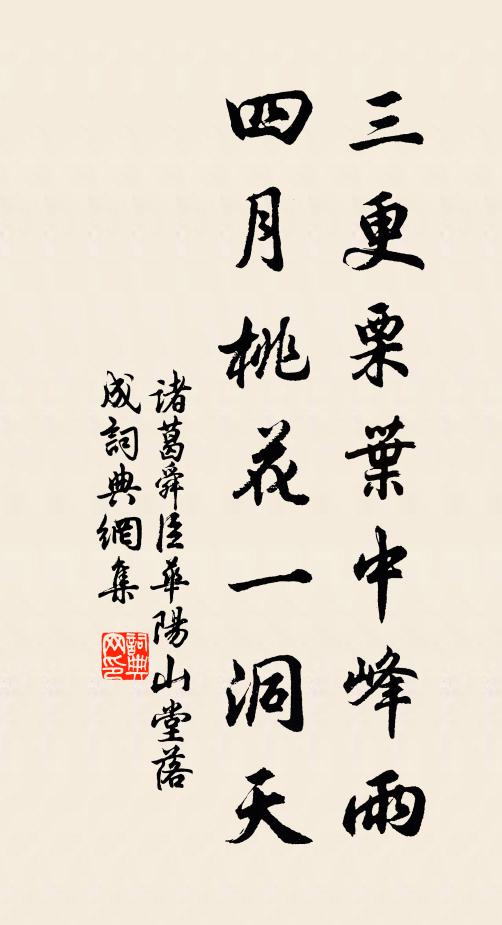 三更栗葉中峰雨
四月桃花一洞天
諸葛舜臣華陽山堂落
成詞典網集
詞典网印